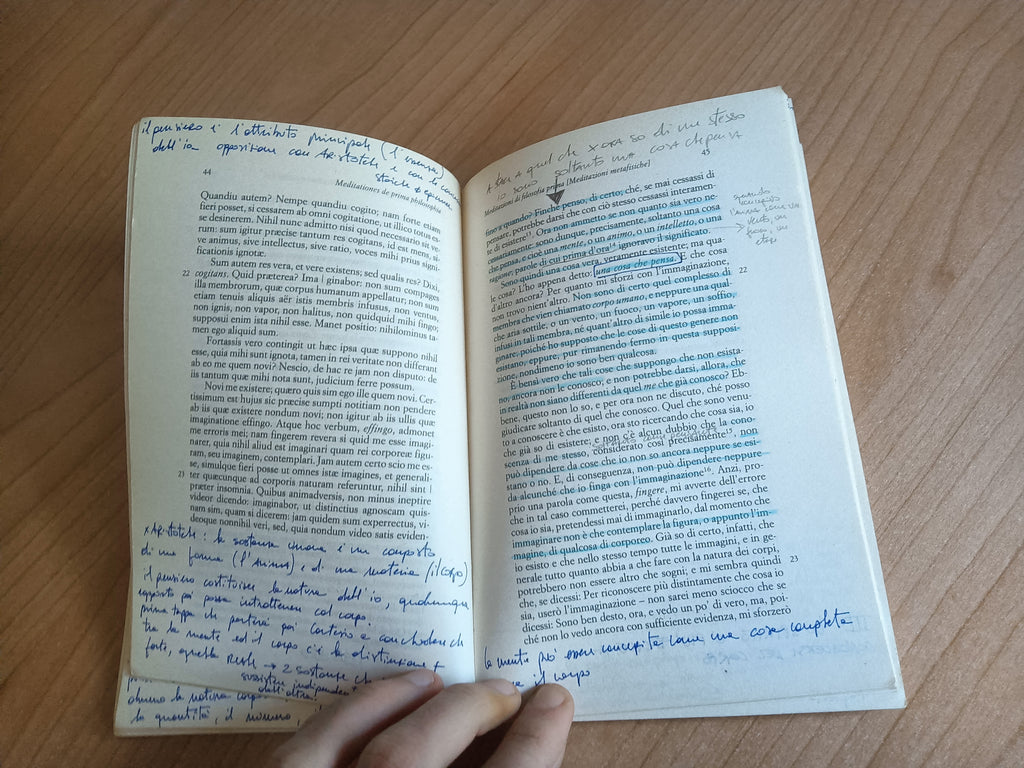 il pensiero è l'attributo principale (l'essenza)
dell'io opposizione con Aristotele e con i
stoici e
44
Meditationes de prima philosophia
Quandiu autem? Nempe quandiu cogito; nam forte etiam
fieri posset, si cessarem ab omni cogitatione, ut illico totus es-
se desinerem. Nihil nunc admitto nisi quod necessario sit ve-
rum: sum igitur præcise tantum res cogitans, id est mens, si-
ve animus, sive intellectus, sive ratio, voces mihi prius signi-
ficationis ignotæ.
Sum autem res vera, et vere existens; sed qualis res? Dixi,
22 cogitans. Quid præterea? Ima | ginabor: non sum compages
illa membrorum, quæ corpus humanum appellatur; non sum
etiam tenuis aliquis aër istis membris infusus, non ventus,
non ignis, non vapor, non halitus, non quidquid mihi fingo:
supposui enim ista nihil esse. Manet positio: nihilominus ta-
men ego aliquid sum.
Fortassis vero contingit ut hæc ipsa quæ suppono nihil
esse, quia mihi sunt ignota, tamen in rei veritate non differant
ab eo me quem novi? Nescio, de hac re jam non disputo: de
iis tantum quæ mihi nota sunt, judicium ferre possum.
Novi me existere; quæro quis sim ego ille quem novi. Cer-
tissimum est hujus sic præcise sumpti notitiam non pendere
ab iis quæ existere nondum novi; non igitur ab iis ullis quæ
imaginatione effingo. Atque hoc verbum, effingo, admonet
me erroris mei; nam fingerem revera si quid me esse imagi-
narer, quia nihil aliud est imaginari quam rei corporeæ figu-
ram, seu imaginem, contemplari. Jam autem certo scio me es-
se, simulque fieri posse ut omnes istæ imagines, et generali-
23 ter quæcunque ad corporis naturam referuntur, nihil sint |
præter insomnia. Quibus animadversis, non minus ineptire
videor dicendo: imaginabor, ut distinctius agnoscam quis-
nam sim, quam si dicerem: jam quidem sum experrectus, vi-
deoque nonnihil veri, sed, quia nondum video satis eviden-
x Aristotele: la sostanza umana è un composto
di una forma (l'anima), e di una materia (il corpo)
il pensiero costituisce la natura dell'io, qualunque
rapporto poi possa intrattenere col corpo.
prima tappa che porterà poi Cartesio a concludere che
tra la mente ed il corpo c'è la distinzione +
forte, quella REALE → 2 sostanze
indipendent
dall'altra
la natura
la quantità, il numero,
quel che x ORA so di me stesso
io sono soltanto UNA COSA CHE PENSA
45
Meditazioni di filosofia prima [Meditazioni metafisiche]
fino a quando? Finché penso, di certo; ché, se mai cessassi di
pensare, potrebbe darsi che con ciò stesso cessassi interamen-
te di esistere¹³. Ora non ammetto se non quanto sia vero ne-
cessariamente: sono dunque, precisamente, soltanto una cosa
che pensa, e cioè una mente, o un animo, o un intelletto, o una
ragione; parole di cui prima d'ora¹⁴ ignoravo il significato.
Sono quindi una cosa vera, veramente esistente; ma qua-
le cosa? L'ho appena detto: una cosa che pensa. E che cosa
d'altro ancora? Per quanto mi sforzi con l'immaginazione, 22
non trovo nient'altro. Non sono di certo quel complesso di
membra che vien chiamato corpo umano, e neppure una qual-
che aria sottile, o un vento, un fuoco, un vapore, un soffio,
infusi in tali membra, né quant'altro di simile io possa imma-
ginare, poiché ho supposto che le cose di questo genere non
esistano; eppure, pur rimanendo fermo in questa supposi-
zione, nondimeno io sono ben qualcosa.
È bensì vero che tali cose che suppongo che non esista-
no, ancora non le conosco; e non potrebbe darsi, allora, che
in realtà non siano differenti da quel me che già conosco? Eb-
bene, questo non lo so, e per ora non ne discuto, ché posso
giudicare soltanto di quel che conosco. Quel che sono venu-
to a conoscere è che esisto, ora sto ricercando che cosa sia, io
che già so di esistere; e non c'è alcun dubbio che la cono-
scenza di me stesso, considerato così precisamente¹⁵, non
può dipendere da cose che io non so ancora neppure se esi-
stano o no. E, di conseguenza, non può dipendere neppure
da alcunché che io finga con l'immaginazione¹⁶. Anzi, pro-
prio una parola come questa, fingere, mi avverte dell'errore
che in tal caso commetterei, perché davvero fingerei se, che
cosa io sia, pretendessi mai di immaginarlo, dal momento che
immaginare non è che contemplare la figura, o appunto l'im-
magine, di qualcosa di corporeo. Già so di certo, infatti, che
io esisto e che nello stesso tempo tutte le immagini, e in ge-
nerale tutto quanto abbia a che fare con la natura dei corpi,
potrebbero non essere altro che sogni; e mi sembra quindi 23
che, se dicessi: Per riconoscere più distintamente che cosa io
sia, userò l'immaginazione – non sarei meno sciocco che se
dicessi: Sono ben desto, ora, e vedo un po' di vero, ma, poi-
ché non lo vedo ancora con sufficiente evidenza, mi sforzerò
la mente può essere concepita come una cosa completa
il corpo